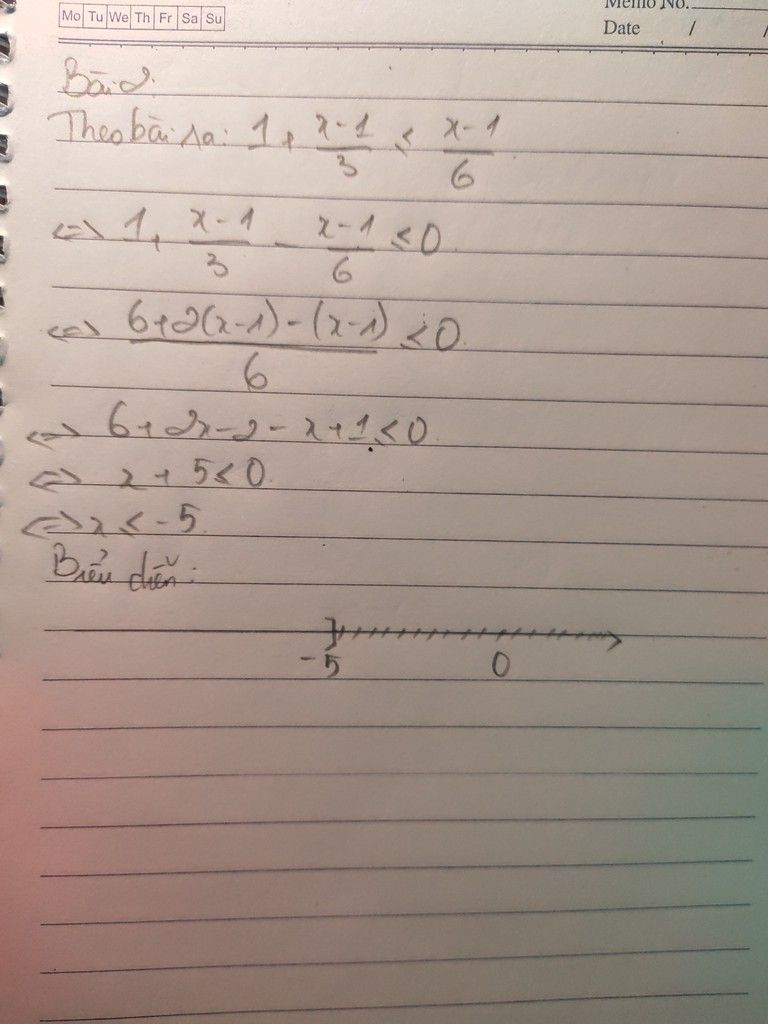 Mo Tu We Th Fr Sa Su
Memo No.
Date / /
Bài 2:
Theo bài ra: 1 + \frac{x-1}{3} ≤ \frac{x-1}{6}
<=> 1 + \frac{x-1}{3} - \frac{x-1}{6} ≤ 0
<=> \frac{6+2(x-1)-(x-1)}{6} ≤ 0
<=> 6 + 2x - 2 - x + 1 ≤ 0
<=> x + 5 ≤ 0
<=> x ≤ -5
Biểu diễn:
-5 0